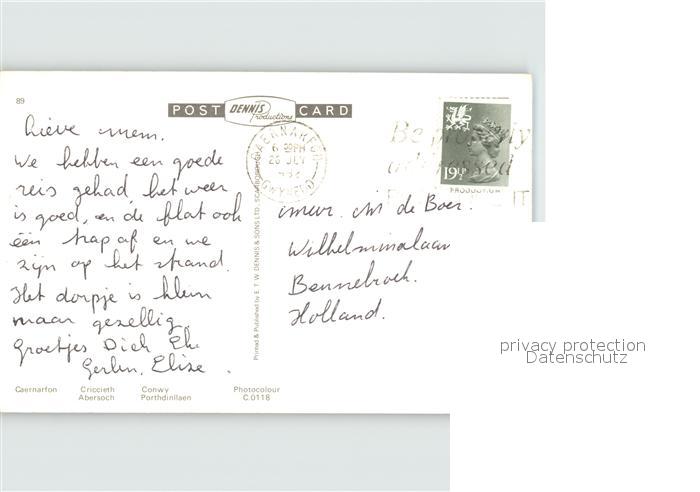 89
POST DENNIS Productions CARD
Lieve mem.
We hebben een goede
reis gehad, het weer
is goed, en de flat ook
één trap af en we
zijn op het strand.
Het dorpje is klein
maar gezellig.
Groetjes Dick
Elise.
Caernarfon Criccieth Conwy Photocolour
Abersoch Porthdinllaen C.0118
Printed & Published by E. T. W. DENNIS & SONS LTD., SCARBOROUGH
CAERNARFON
GWYNEDD
Be properly
addressed
19½P
de Boer.
Wilhelminalaan
Bennebroek.
Holland.
privacy protection
Datenschutz